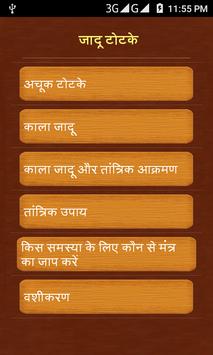 3G 11:55 PM
जादू टोटके
अचूक टोटके
काला जादू
काला जादू और तांत्रिक आक्रमण
तांत्रिक उपाय
किस समस्या के लिए कौन से मंत्र
का जाप करें
वशीकरण